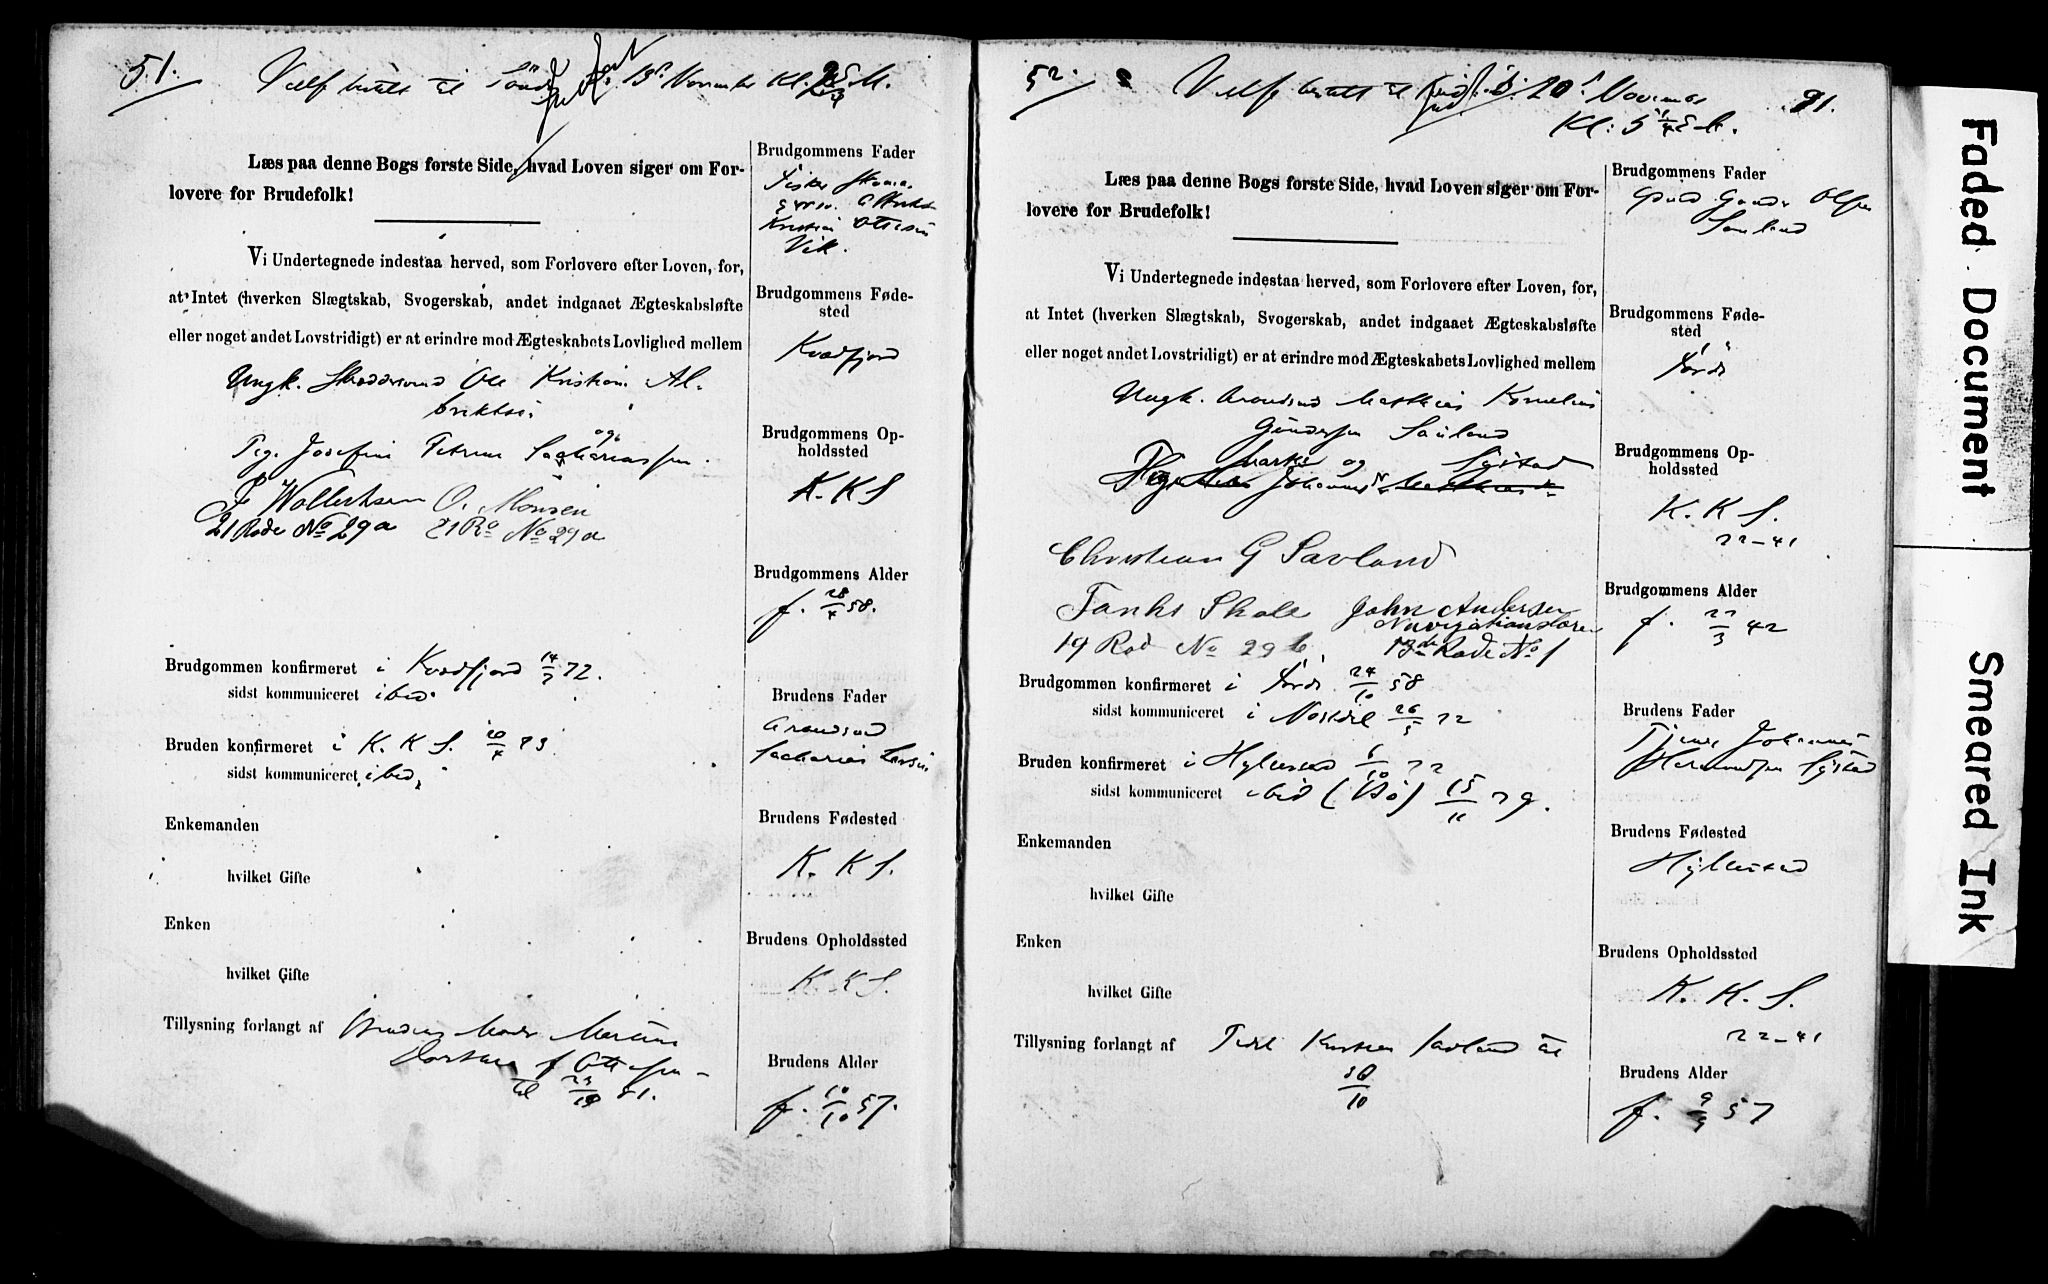 51.
Vielse bestilt til Sönd. 13. November Kl.
Læs paa denne Bogs første Side, hvad Loven siger om For-
lovere for Brudefolk!
Vi Undertegnede indestaa herved, som Forlovere efter Loven, for,
at Intet (hverken Slægtskab, Svogerskab, andet indgaaet Ægteskabsløfte
eller noget andet Lovstridigt) er at erindre mod Ægteskabets Lovlighed mellem
Ungk. Ole Kristian Al-
briktsen
og
Pig. Josefine Petrine Sachariassen.
F Wollertsen O. Monsen
21 Rode No 29a 21 Ro No 29a
Brudgommen konfirmeret i Kvædfjord 14/7 72.
sidst kommuniceret ibid
Bruden konfirmeret i K. K S. 20/4 73
sidst kommuniceret ibid
Enkemanden
hvilket Gifte
Enken
hvilket Gifte
Tillysning forlangt af Brudens Moder
til 81.
Brudgommens Fader
Fisker
Kristian Ottesen
Vik.
Brudgommens Føde-
sted
Kvædfjord
Brudgommens Op-
holdssted
K. K S
Brudgommens Alder
f. 28/4 58.
Brudens Fader
Arbeidsmd
Sacharias Larsen
Brudens Fødested
K. K S.
Brudens Opholdssted
K K S.
Brudens Alder
f. 10/10 57.
52.
Vielse bestilt til 20. November
Kl: 5 1/4
91.
Læs paa denne Bogs første Side, hvad Loven siger om For-
lovere for Brudefolk!
Vi Undertegnede indestaa herved, som Forlovere efter Loven, for,
at Intet (hverken Slægtskab, Svogerskab, andet indgaaet Ægteskabsløfte
eller noget andet Lovstridigt) er at erindre mod Ægteskabets Lovlighed mellem
Ungk. Matthias Kornelius
Gundersen Savland
og Systad
Pige Johannesd.
Christian G Savland
Tanks Skole John Andersen
Navigationslærer
19 Rod No 29 b. 13de Rode No 1
Brudgommen konfirmeret i Førde 24/10 58
sidst kommuniceret i 26/5 72
Bruden konfirmeret i Hyllestad 6/10 72
sidst kommuniceret ibid (Bø) 15/11 79.
Enkemanden
hvilket Gifte
Enken
hvilket Gifte
Tillysning forlangt af Kristian Savland til
30/10
Brudgommens Fader
Gunder Olsen
Savland
Brudgommens Føde-
sted
Førde
Brudgommens Op-
holdssted
K. K S.
22-41
Brudgommens Alder
f. 22/3 42
Brudens Fader
Johannes
Systad
Brudens Fødested
Hyllestad
Brudens Opholdssted
K. K. S.
22-41
Brudens Alder
f. 57
Faded Document
Smeared Ink